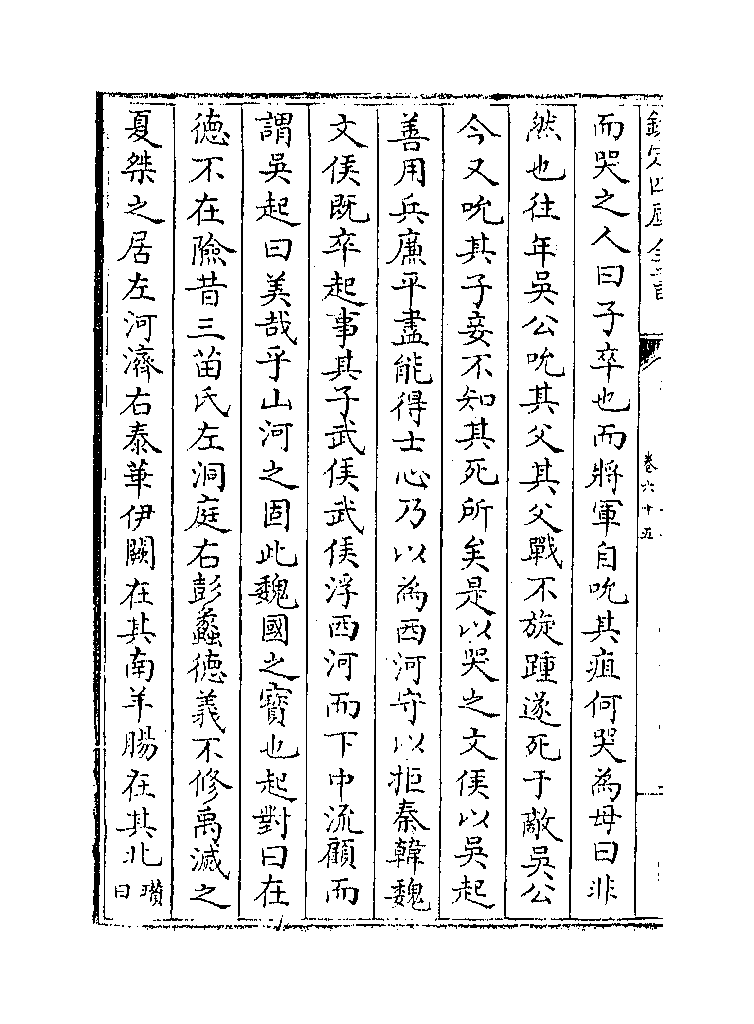 欽定四庫全書
卷六十五
而哭之人曰子卒也而將軍自吮其疽何哭為母曰非
然也往年吳公吮其父其父戰不旋踵遂死于敵吳公
今又吮其子妾不知其死所矣是以哭之文侯以吳起
善用兵廉平盡能得士心乃以為西河守以拒秦韓魏
文侯既卒起事其子武侯武侯浮西河而下中流顧而
謂吳起曰美哉乎山河之固此魏國之寶也起對曰在
德不在險昔三苗氏左洞庭右彭蠡德義不修禹滅之
夏桀之居左河濟右泰華伊闕在其南羊腸在其北瓚曰